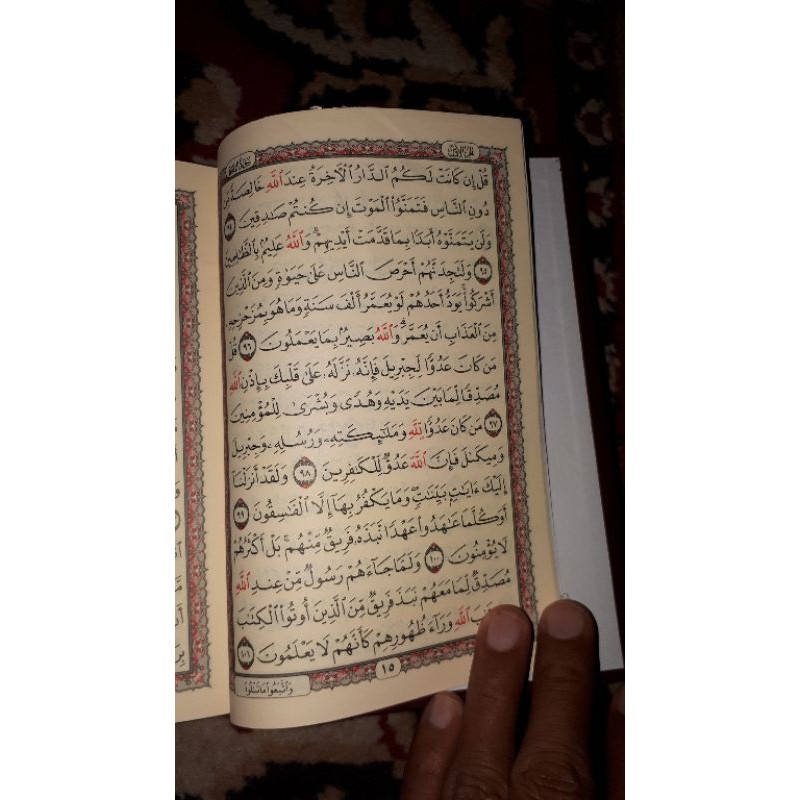 قُلْ إِن كَانَتْ لَكُمُ الدَّارُ الْآخِرَةُ عِندَ اللَّهِ خَالِصَةً مِّن
دُونِ النَّاسِ فَتَمَنَّوُا الْمَوْتَ إِن كُنتُمْ صَادِقِينَ ٩٤
وَلَن يَتَمَنَّوْهُ أَبَدًا بِمَا قَدَّمَتْ أَيْدِيهِمْ ۗ وَاللَّهُ عَلِيمٌ بِالظَّالِمِينَ
٩٥ وَلَتَجِدَنَّهُمْ أَحْرَصَ النَّاسِ عَلَىٰ حَيَوٰةٍ وَمِنَ الَّذِينَ
أَشْرَكُوا ۚ يَوَدُّ أَحَدُهُمْ لَوْ يُعَمَّرُ أَلْفَ سَنَةٍ وَمَا هُوَ بِمُزَحْزِحِهِ
مِنَ الْعَذَابِ أَن يُعَمَّرَ ۗ وَاللَّهُ بَصِيرٌ بِمَا يَعْمَلُونَ ٩٦ قُلْ
مَن كَانَ عَدُوًّا لِّجِبْرِيلَ فَإِنَّهُ نَزَّلَهُ عَلَىٰ قَلْبِكَ بِإِذْنِ اللَّهِ
مُصَدِّقًا لِّمَا بَيْنَ يَدَيْهِ وَهُدًى وَبُشْرَىٰ لِلْمُؤْمِنِينَ
٩٧ مَن كَانَ عَدُوًّا لِّلَّهِ وَمَلَٰئِكَتِهِ وَرُسُلِهِ وَجِبْرِيلَ
وَمِيكَىٰلَ فَإِنَّ اللَّهَ عَدُوٌّ لِّلْكَافِرِينَ ٩٨ وَلَقَدْ أَنزَلْنَا
إِلَيْكَ ءَايَٰتٍ بَيِّنَٰتٍ ۖ وَمَا يَكْفُرُ بِهَا إِلَّا الْفَاسِقُونَ ٩٩
أَوَكُلَّمَا عَٰهَدُوا عَهْدًا نَّبَذَهُ فَرِيقٌ مِّنْهُم ۚ بَلْ أَكْثَرُهُمْ
لَا يُؤْمِنُونَ ١٠٠ وَلَمَّا جَاءَهُمْ رَسُولٌ مِّنْ عِندِ اللَّهِ
مُصَدِّقٌ لِّمَا مَعَهُمْ نَبَذَ فَرِيقٌ مِّنَ الَّذِينَ أُوتُوا الْكِتَٰبَ
اللَّهِ وَرَاءَ ظُهُورِهِمْ كَأَنَّهُمْ لَا يَعْلَمُونَ ١٠١
١٥
وَاتَّبَعُوا مَا تَتْلُوا